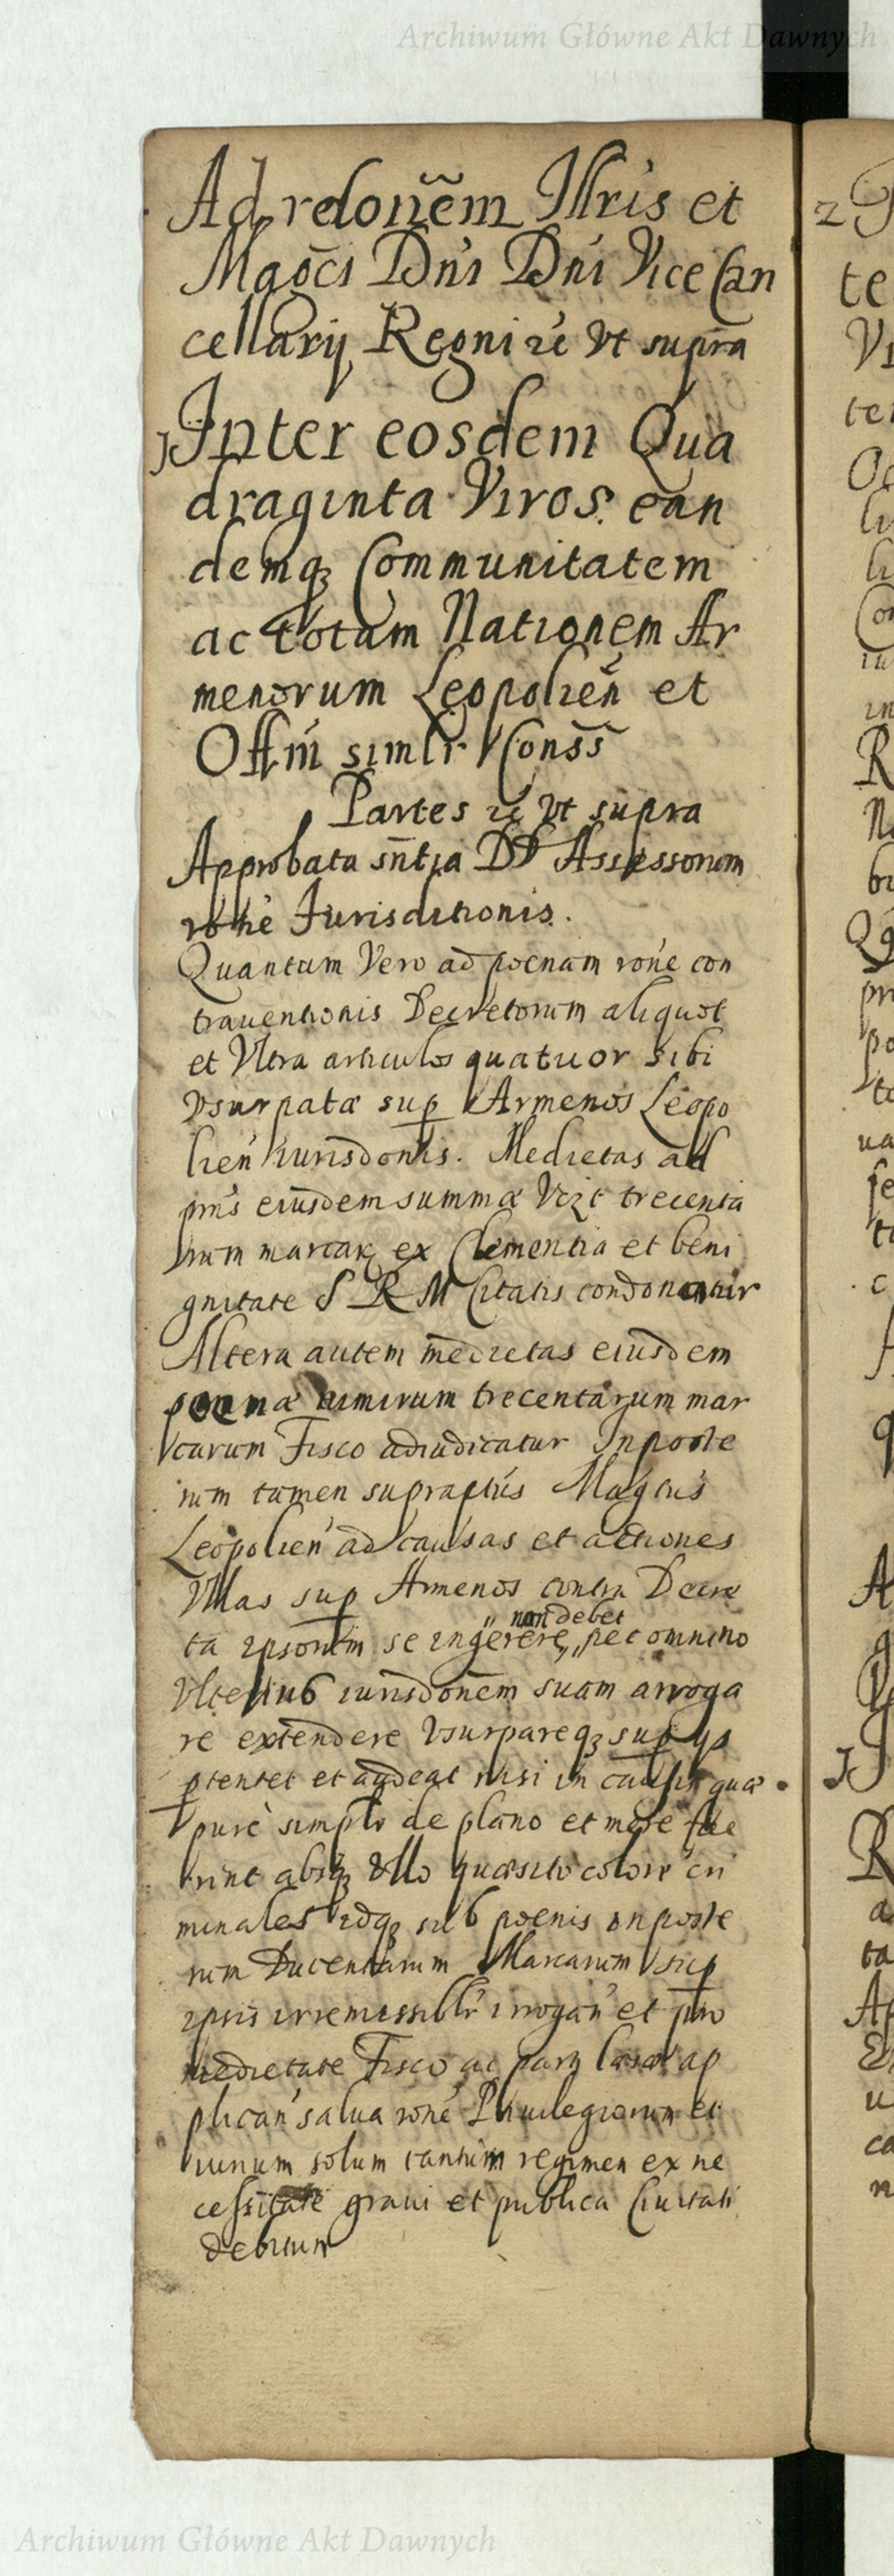 Archiwum Główne Akt Dawnych
Ad relonẽm Illris et
Magc̃i Dn̄i Dn̄i Vice Can
cellarij Regni ꝛc̃ Vt supra
1 Inter eosdem Qua
draginta Viros. ean
demqꝫ Communitatem
ac totam Nationem Ar
menorum Leopolien̄ et
Offm̄ simlr Consš
Partes ꝛc̃ Vt supra
Approbata sn̄tia DD Assessorum
rōne Jurisditionis.
Quantum Vero ad poenam rōne con
trauentionis Decretorum aliquot
et Vltra articulos quatuor sibi
Vsurpatæ sup Armenos Leopo
lien̄ iurisdonis. Medietas ad
pn̄s eiusdem summæ Vizt trecenta
rum marcaꝝ ex Clementia et beni
gnitate S R M Citatis condonatur
Altera autem medietas eiusdem
poenæ nimirum trecentarum mar
carum Fisco adiudicatur Inposte
rum tamen supraptus Magtus
Leopolien̄ ad causas et actiones
Vllas sup Armenos contra Decre
non debet
ta ipsorum se ingerere, nec omnino
Vlterius iurisdonẽm suam arroga
re extendere Vsurpareqꝫ sup ijs
ptentet et audeat nisi in causis quæ
purè simplr de plano et mere fue
rint absqꝫ Vllo quæsito colore cri
minales idqꝫ sub poenis inposte
rum Ducentarum Marcarum sup
ipsis irremissiblr irrogan̄ et pro
medietate Fisco ac parti læsæ ap
plican̄ salua rōne Priuilegiorum et
iurium solum tantum regimen ex ne
cessitate graui et publica Ciuitati
debitum
Archiwum Główne Akt Dawnych